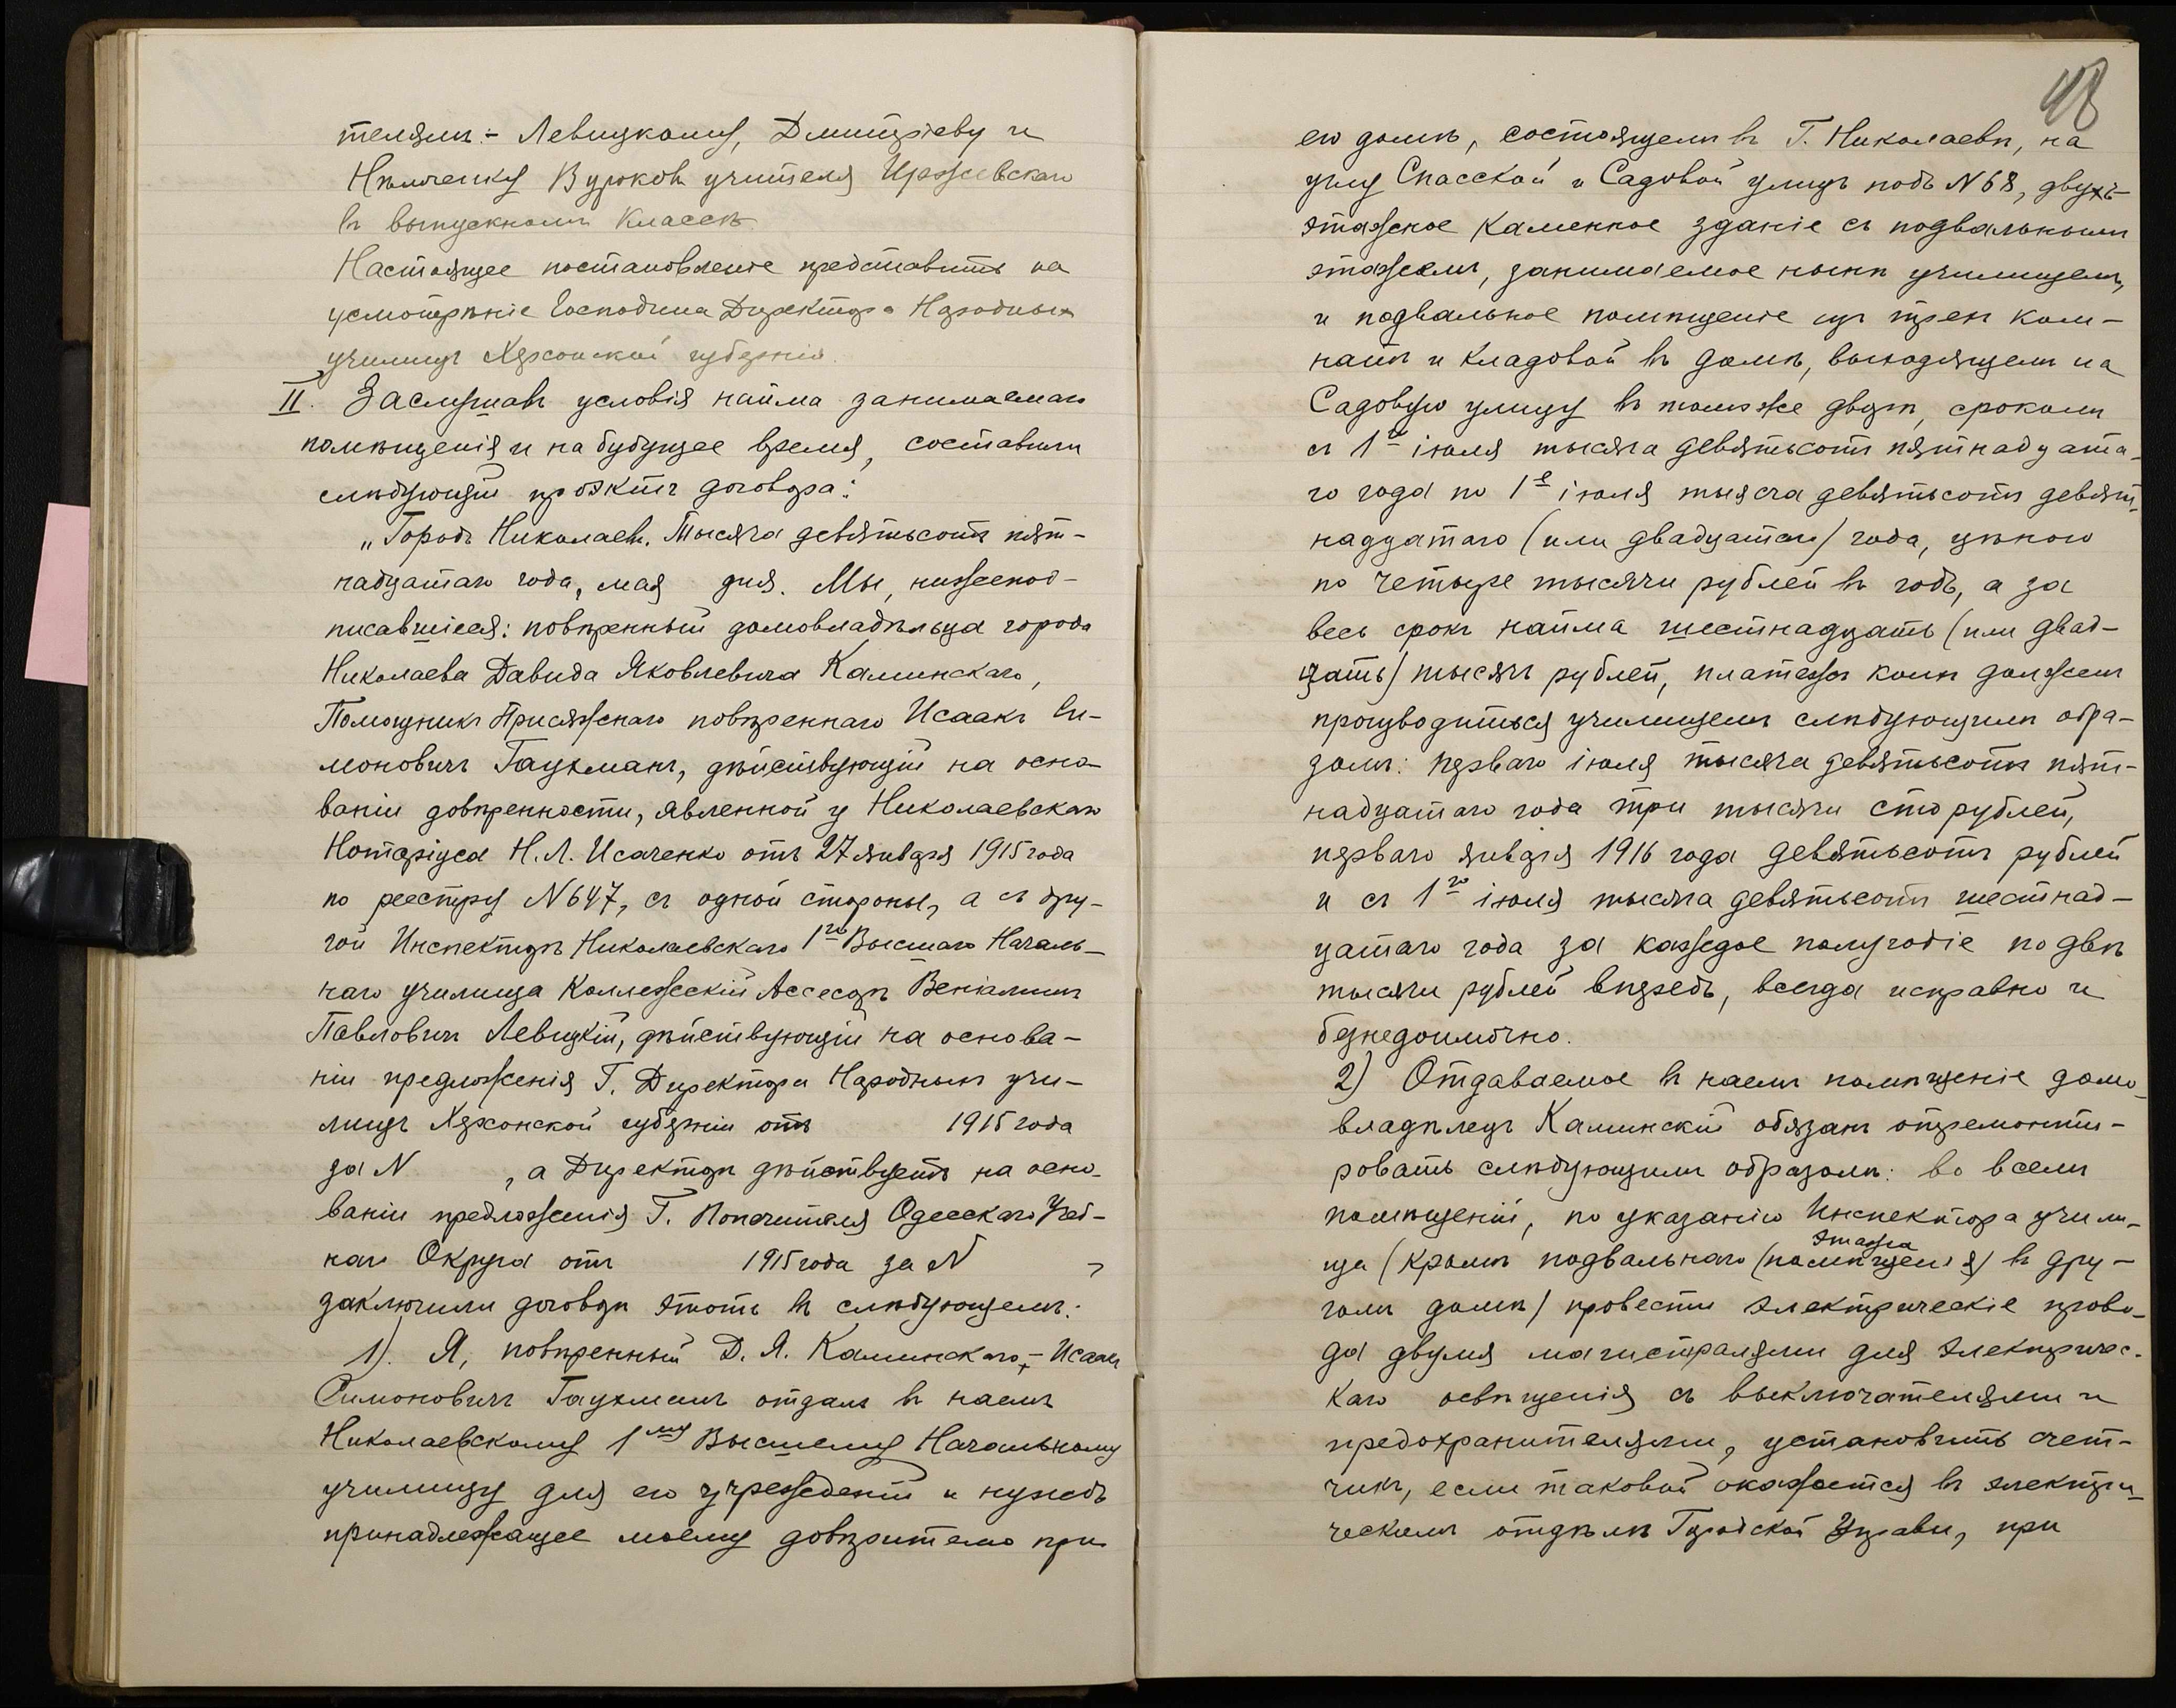 телямъ:- Левицкому, Дмитріеву и
Нѣмченку 3 уроковъ учителя Иржевскаго
въ выпускномъ классѣ.
Настоящее постановленіе представить на
усмотрѣніе Господина Директора Народныхъ
училищъ Херсонской губерніи.
II. Заслушавъ условія найма занимаемаго
помѣщенія и на будущее время, составили
слѣдующій проэктъ договора:
„Городъ Николаевъ. Тысяча девятьсотъ пят-
надцатаго года, мая дня. Мы, нижепод-
писавшіеся: повѣренный домовладѣльца города
Николаева Давида Яковлевича Каминскаго,
Помощникъ Присяжнаго повѣреннаго Исаакъ Си-
моновичъ Гаухманъ, дѣйствующій на осно-
ваніи довѣренности, явленной у Николаевскаго
Нотаріуса Н. Л. Исаченко отъ 27 января 1915 года
по реестру № 647, съ одной стороны, а съ дру-
гой Инспекторъ Николаевскаго 1го Высшаго Началь-
наго училища Коллежскій Ассесоръ Веніаминъ
Павловичъ Левицкій, дѣйствующій на основа-
ніи предложенія Г. Директора Народныхъ учи-
лищъ Херсонской губерніи отъ 1915 года
за № , а Директоръ дѣйствуетъ на осно-
ваніи предложенія Г. Попечителя Одесскаго Учеб-
наго Округа отъ 1915 года за № ,
заключили договоръ этотъ въ слѣдующемъ:
1). Я, повѣренный Д. Я. Каминскаго,- Исаакъ
Симоновичъ Гаухманъ отдалъ въ наемъ
Николаевскому 1му Высшему Начальному
училищу для его учрежденій и нуждъ
принадлежащее моему довѣрителю при
48
его домѣ, состоящемъ въ Г. Николаевѣ, на
углу Спасской и Садовой улицъ подъ № 68, двухъ-
этажное каменное зданіе съ подвальнымъ
этажемъ, занимаемое нынѣ училищемъ,
и подвальное помѣщеніе изъ трехъ ком-
натъ и кладовой въ домѣ, выходящемъ на
Садовую улицу въ томъ же дворѣ, срокомъ
съ 1го іюля тысяча девятьсотъ пятнадцата-
го года по 1е іюля тысяча девятьсотъ девят-
надцатаго (или двадцатаго) года, цѣною
по четыре тысячи рублей въ годъ, а за
весь срокъ найма шестнадцать (или двад-
цать) тысячъ рублей, платежъ коихъ долженъ
производиться училищемъ слѣдующимъ обра-
зомъ: перваго іюля тысяча девятьсотъ пят-
надцатаго года три тысячи сто рублей,
перваго января 1916 года девятьсотъ рублей
и съ 1го іюля тысяча девятьсотъ шестнад-
цатаго года за каждое полугодіе по двѣ
тысячи рублей впередъ, всегда исправно и
безнедоимочно.
2) Отдаваемое въ наемъ помѣщеніе домо-
владѣлецъ Каминскій обязанъ отремонти-
ровать слѣдующимъ образомъ: во всемъ
помѣщеніи, по указанію Инспектора учили-
этажа
ща (кромѣ подвальнаго (помѣщенія) въ дру-
гомъ домѣ) провести электрическіе прово-
да двумя магистралями для электричес-
каго освѣщенія съ выключателями и
предохранителями, установить счет-
чикъ, если таковой окажется въ электри-
ческомъ отдѣлѣ Городской Управы, при